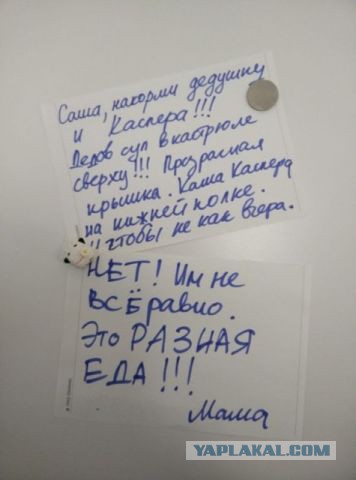 Саша, накорми дедушку
и Каспера!!!
Дедов суп в кастрюле
сверху!!! Прозрачная
крышка. Каша Каспера
на нижней полке.
И чтобы не как вчера.
НЕТ! Им не
ВСЁ равно.
Это РАЗНАЯ
ЕДА!!!
Мама
YAPLAKAL.COM